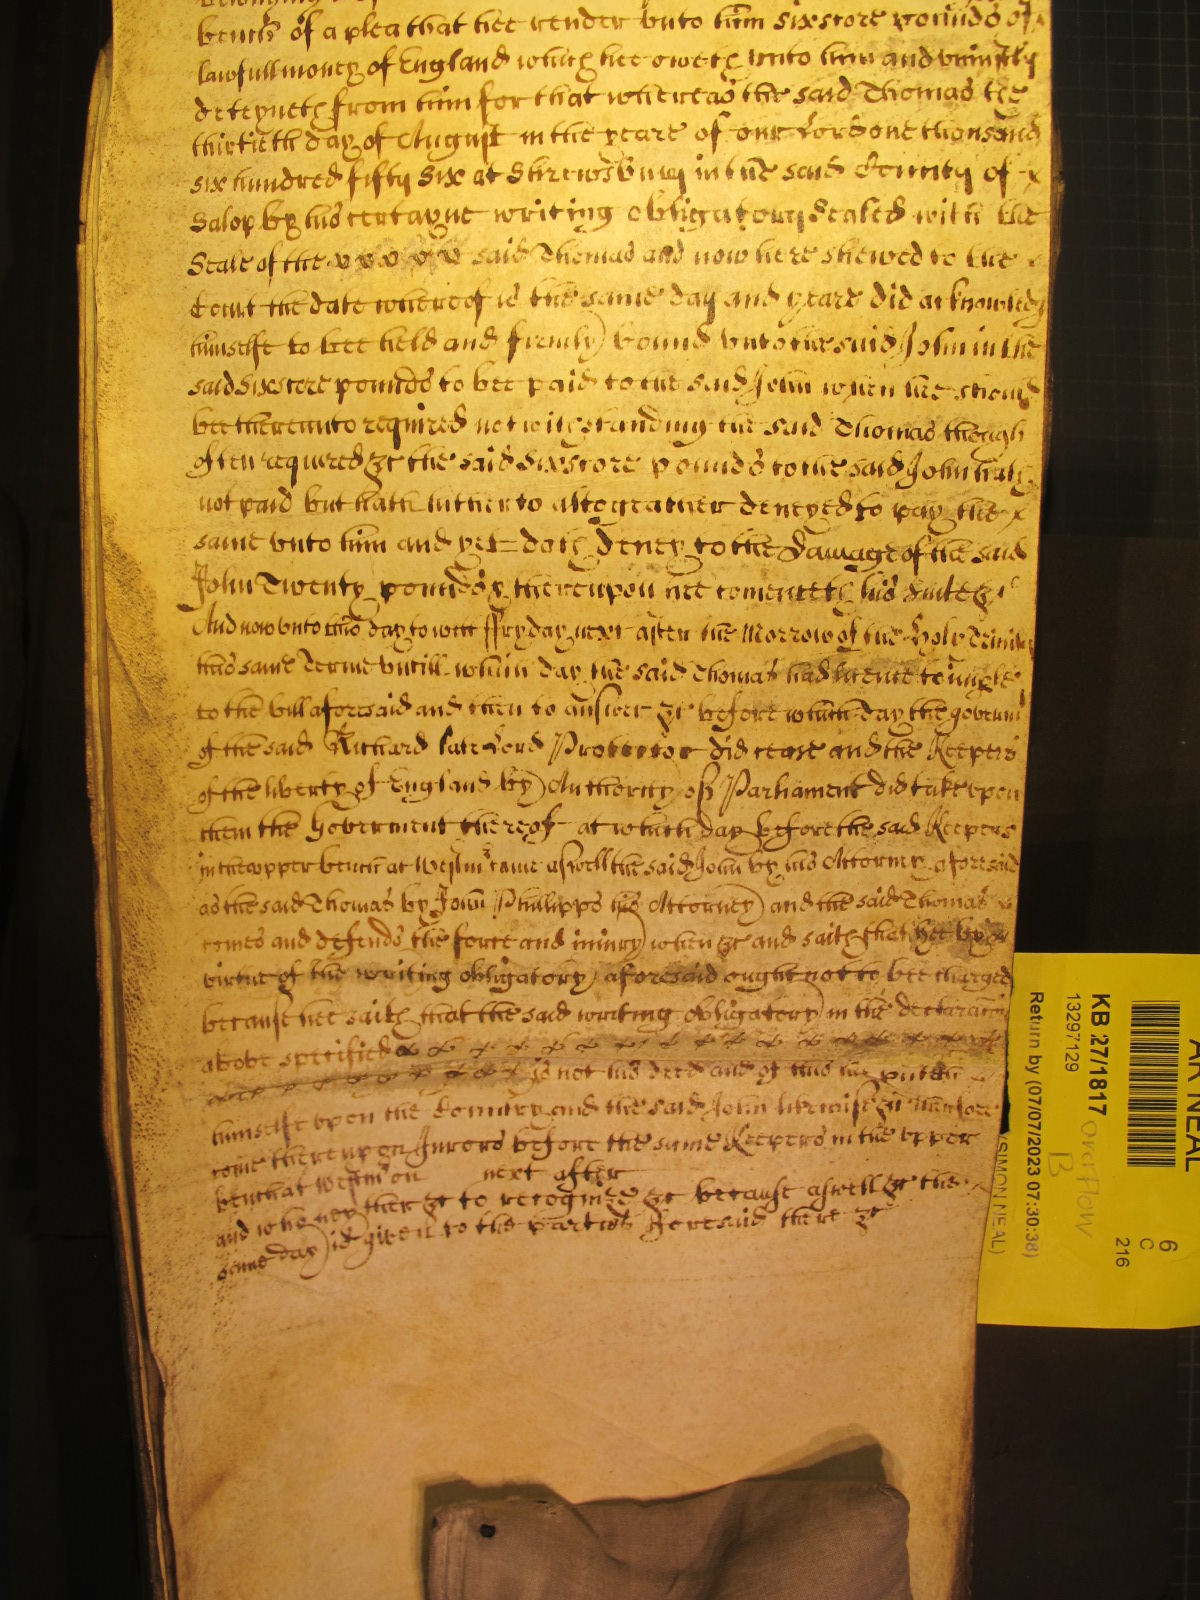 bench of a plea that hee render unto him sixscore pounds of
lawfull money of England which hee oweth unto him and uniustly
deteyneth from him for that whereas the said Thomas the
thirtieth day of August in the yeare of our Lord one thousand
six hundred fifty six at Shrewsbury in the said County of
Salop by his certayne writing obligatory Sealed with the
Seale of the said Thomas and now here shewed to the
Court the date whereof is the same day and yeare did acknowledg
himselfe to bee held and firmly bound unto the said John in the
said sixscore pounds to bee paid to the said John when hee should
bee thereunto required notwithstanding the said Thomas though
often required &c the said sixscore pounds to the said John hath
not paid but hath hitherto altogeather denyed to pay the
same unto him and yet doth deney to the Damage of the said
John Twenty pounds & thereupon hee comenceth his suite &c
And now unto this day to witt ffryday next after the Morrow of the Holy Trinity
this same Terme untill which day the said Thomas had licence to imple
to the bill aforesaid and then to answer &c before which day the goverm
of the said Richard late Lord Protector did cease and the Keepers
of the liberty of England by Authority of Parliament did take upon
them the Goverment thereof at which day before the said Keepers
in the upper bench at Westmr came aswell the said John by his Attorney aforesaid
as the said Thomas by John Phillipps his Attorney and the said Thomas
comes and defends the force and iniury when &c and saith that hee by
virtue of the writing obligatory aforesaid ought not to bee charged
because hee saith that the said writing obligatory in the declaracon
above specified
is not his deed and of this he putteth
himselfe upon the Country and the said John likewise &c therfore
come thereupon Jurors before the same Keepers in the upper
bench at Westmr on next after
and who neyther &c to recognize &c because aswell &c the
same day is given to the parties aforesaid there &c
AR NEAL
KB 27/1817 overflow
B
13297129
Return by (07/07/2023 07:30:38)
(SIMON NEAL)
6
C
216